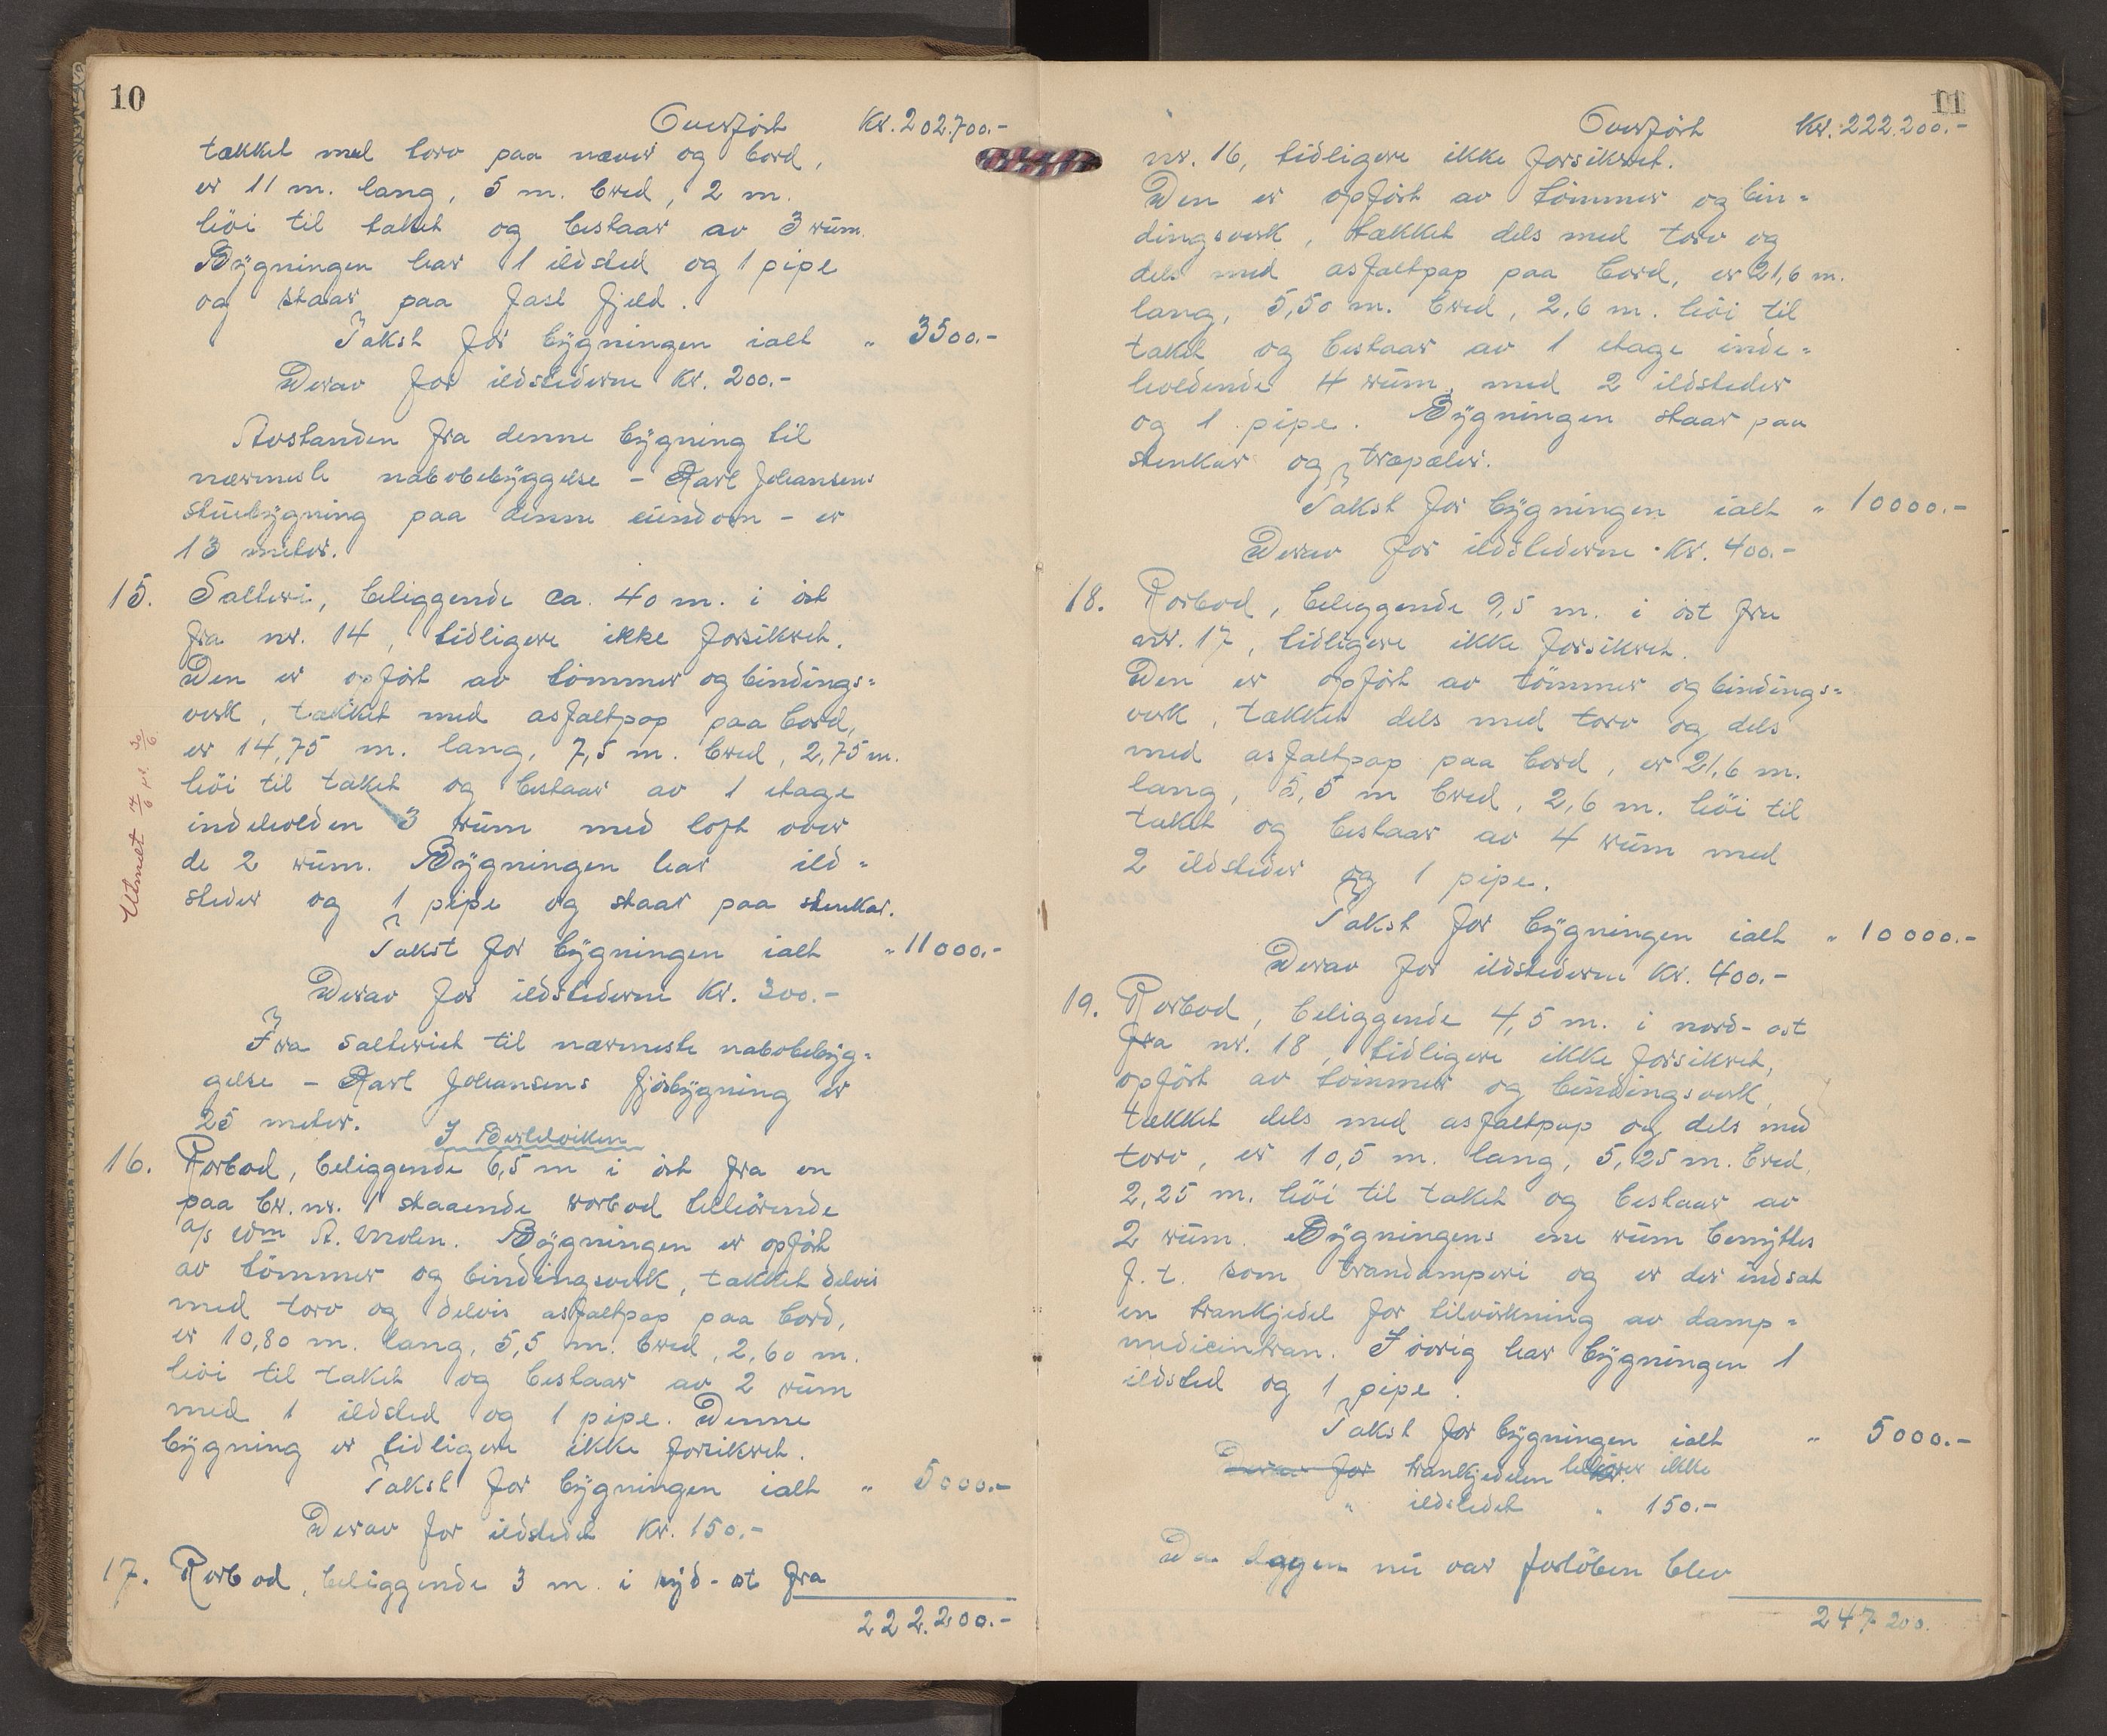 10
Overført Kr. 202.700.-
tækket med torv paa næver og bord,
er 11 m. lang, 5 m. bred, 2 m.
höi til taket og bestaar av 3 rüm.
Bygningen har 1 ildsted og 1 pipe
og staar paa fast fjeld.
Takst for bygningen ialt " 3500.-
Derav for ildstederne Kr. 200.-
Avstanden fra denne bygning til
nærmeste nabobebyggelse - Karl Johansens
stüebygning paa denne eiendom - er
13 meter.
15. Salteri, beliggende ca. 40 m. i öst
fra nr. 14, tidligere ikke forsikret.
Den er opfört av tömmer og bindings=
verk, tækket med asfaltpap paa bord,
er 14,75 m. lang, 7,5 m. bred, 2,75 m.
höi til taket og bestaar av 1 etage
indeholden 3 rüm med loft over
de 2 rüm. Bygningen har ild=
steder og 1 pipe og staar paa stenkar.
Takst for bygningen ialt " 11000.-
Derav for ildstederne Kr. 300.-
Fra salteriet til nærmeste nabobebyg=
gelse - Karl Johansens fjösbygning er
25 meter.
I Berleviken
16. Rorbod, beliggende 6,5 m i öst fra en
paa br. nr. 1 staaende rorbod tilhörende
a/s Wm A. Molen. Bygningen er opfört
av tömmer og bindingsverk, tækket delvis
med torv og delvis asfaltpap paa bord,
er 10,80 m. lang, 5,5 m. bred, 2,60 m.
höi til taket og bestaar av 2 rüm
med 1 ildsted og 1 pipe. Denne
bygning er tidligere ikke forsikret.
Takst for bygningen ialt " 5000.-
Derav for ildstedet Kr. 150.-
17. Rorbod, beliggende 3 m. i syd-ost fra
222.200.-
Utmelt
11
Overført Kr. 222.200.-
nr. 16, tidligere ikke forsikret.
Den er opfört av tömmer og bin=
dingsverk, tækket dels med torv og
dels med asfaltpap paa bord, er 21,6 m.
lang, 5,50 m. bred, 2,6 m. höi til
taket og bestaar av 1 etage inde=
holdende 4 rüm, med 2 ildsteder
og 1 pipe. Bygningen staar paa
stenkar og træpæler.
Takst for bygningen ialt " 10000.-
Derav for ildstederne Kr. 400.-
18. Rorbod, beliggende 9,5 m. i öst fra
nr. 17, tidligere ikke forsikret.
Den er opfört av tömmer og bindings=
verk, tækket dels med torv og dels
med asfaltpap paa bord, er 21,6 m.
lang, 5,5 m bred, 2,6 m. höi til
taket og bestaar av 4 rüm med
2 ildsteder og 1 pipe.
Takst for bygningen ialt " 10000.-
Derav for ildstederne Kr. 400.-
19. Rorbod, beliggende 4,5 m. i nord-ost
fra nr. 18, tidligere ikke forsikret,
opfört av tömmer og bindingsverk,
tækket dels med asfaltpap og dels med
torv, er 10,5 m. lang, 5,25 m. bred,
2,25 m. höi til taket og bestaar av
2 rüm. Bygningens ene rüm benyttes
f. t. som trandamperi og er der indsat
en trankjedel for tilvirkning av damp=
medicintran. I övrig har bygningen 1
ildsted og 1 pipe.
Takst for bygningen ialt " 5000.-
Derav for trankjedelen tilhörer ikke
" ildstedet " 150.-
Da dagen nü var forlöben blev
247.200.